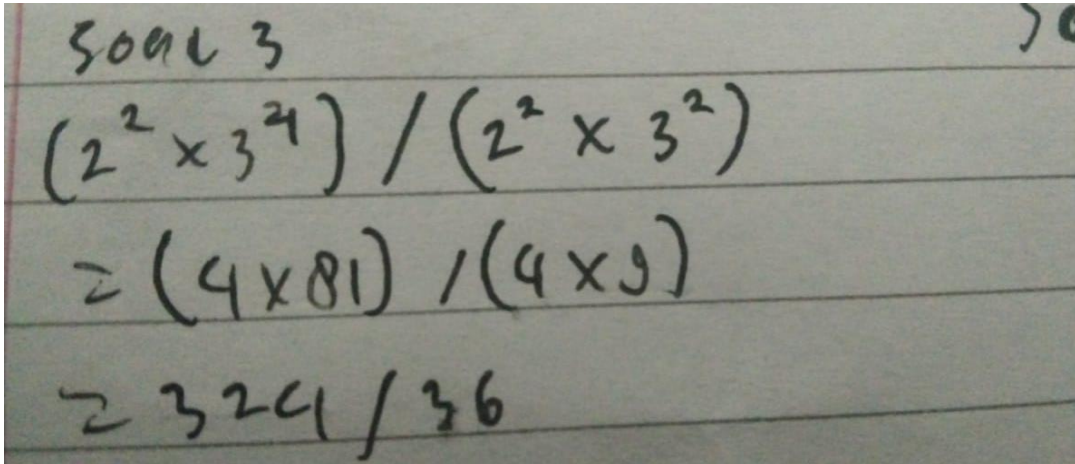 Soal 3
(2² × 3⁴) / (2² × 3²)
= (4 × 81) / (4 × 9)
= 324 / 36